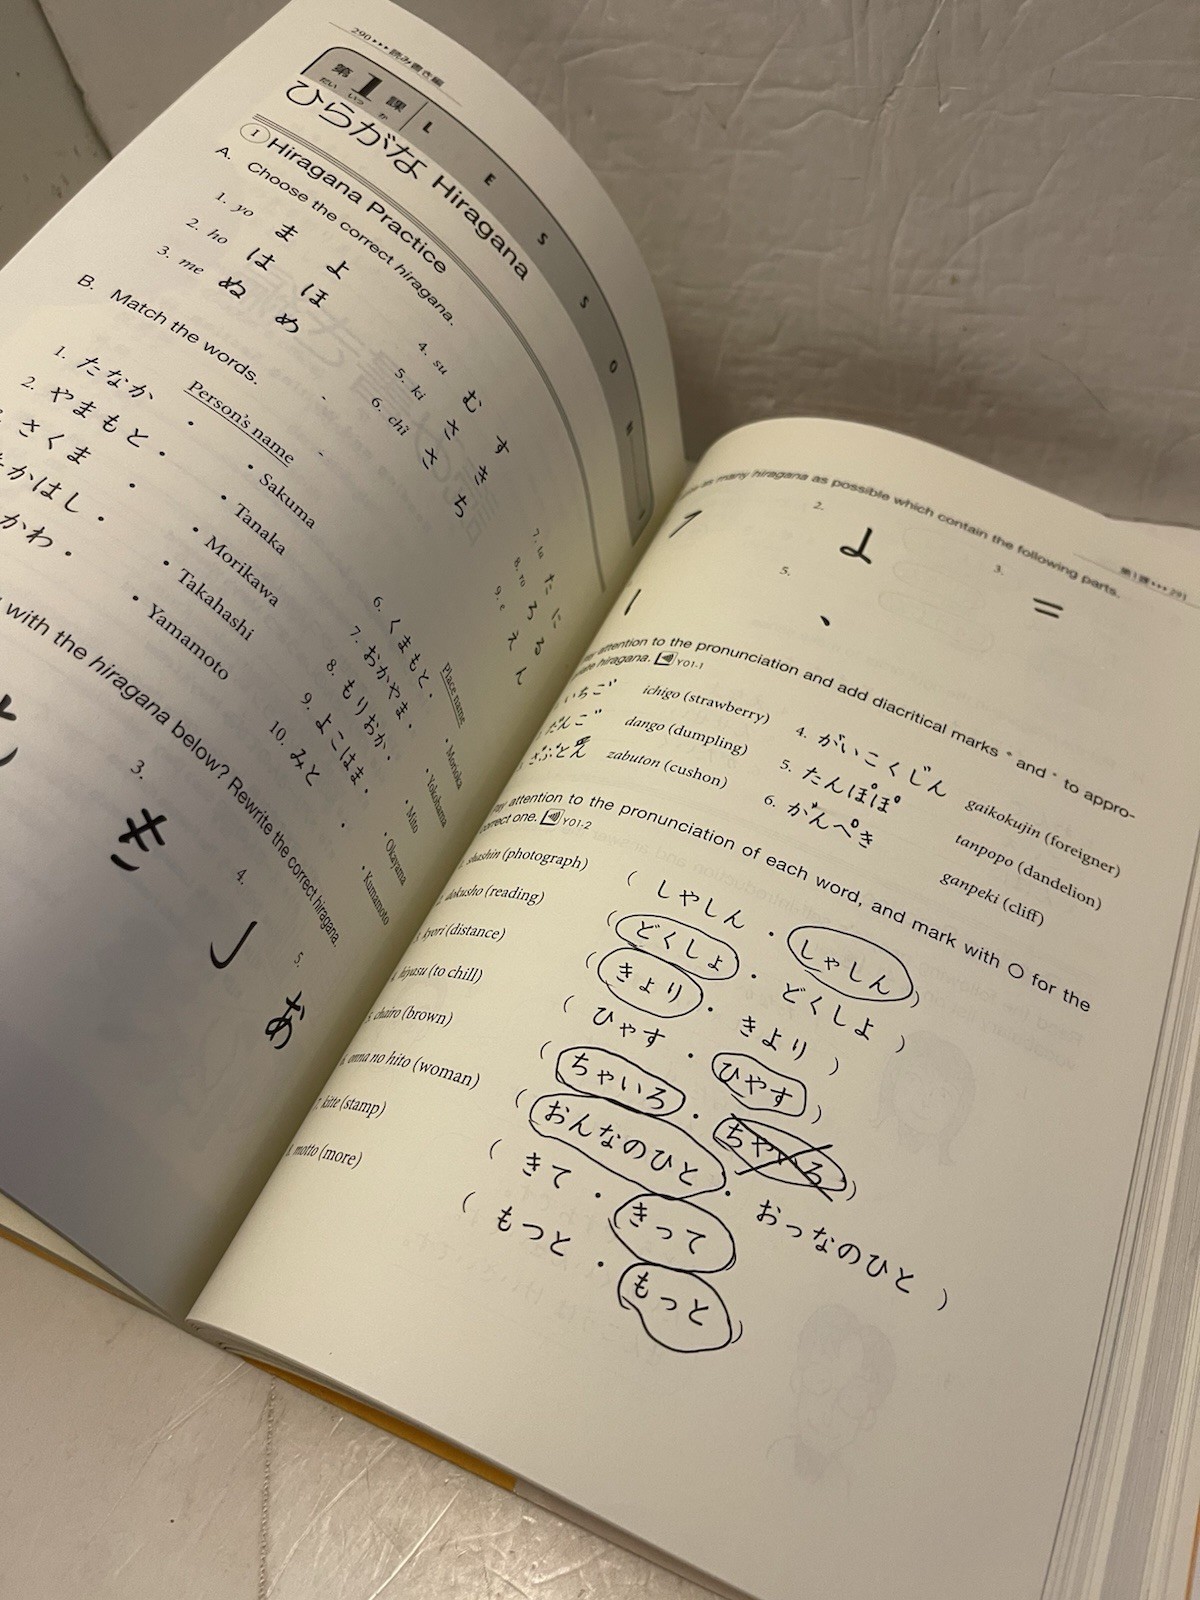 290 ▸▸▸ 読み書き編
第1課 LESSON 1
だい いっ か
ひらがな Hiragana
1 Hiragana Practice
A. Choose the correct hiragana.
1. yo ま よ
2. ho は ほ
3. me ぬ め
4. su む す
5. ki さ き
6. chi さ ち
7. ta た に
8. ro ろ る
9. e え ん
B. Match the words.
Person's name
1. たなか ・ ・ Sakuma
2. やまもと ・ ・ Tanaka
さくま ・ ・ Morikawa
たかはし ・ ・ Takahashi
かわ ・ ・ Yamamoto
Place name
6. くまもと ・ ・ Morioka
7. おかやま ・ ・ Yokohama
8. もりおか ・ ・ Mito
9. よこはま ・ ・ Okayama
10. みと ・ ・ Kumamoto
with the hiragana below? Rewrite the correct hiragana.
3. き
4. し
5. あ
第1課 ▸▸▸ 291
as many hiragana as possible which contain the following parts.
2.
3. =
5. 、
attention to the pronunciation and add diacritical marks ゛ and ゜ to appro-
hiragana. Y01-1
いちご ichigo (strawberry)
だんご dango (dumpling)
ざぶとん zabuton (cushon)
4. がいこくじん gaikokujin (foreigner)
5. たんぽぽ tanpopo (dandelion)
6. がんぺき ganpeki (cliff)
Pay attention to the pronunciation of each word, and mark with ○ for the
correct one. Y01-2
shashin (photograph) ( しやしん ・ しゃしん )
dokusho (reading) ( どくしょ ・ どくしよ )
kyori (distance) ( きょり ・ きより )
hiyasu (to chill) ( ひゃす ・ ひやす )
chairo (brown) ( ちゃいろ ・ ちやいろ )
onna no hito (woman) ( おんなのひと ・ おっなのひと )
7. kitte (stamp) ( きて ・ きって )
8. motto (more) ( もつと ・ もっと )